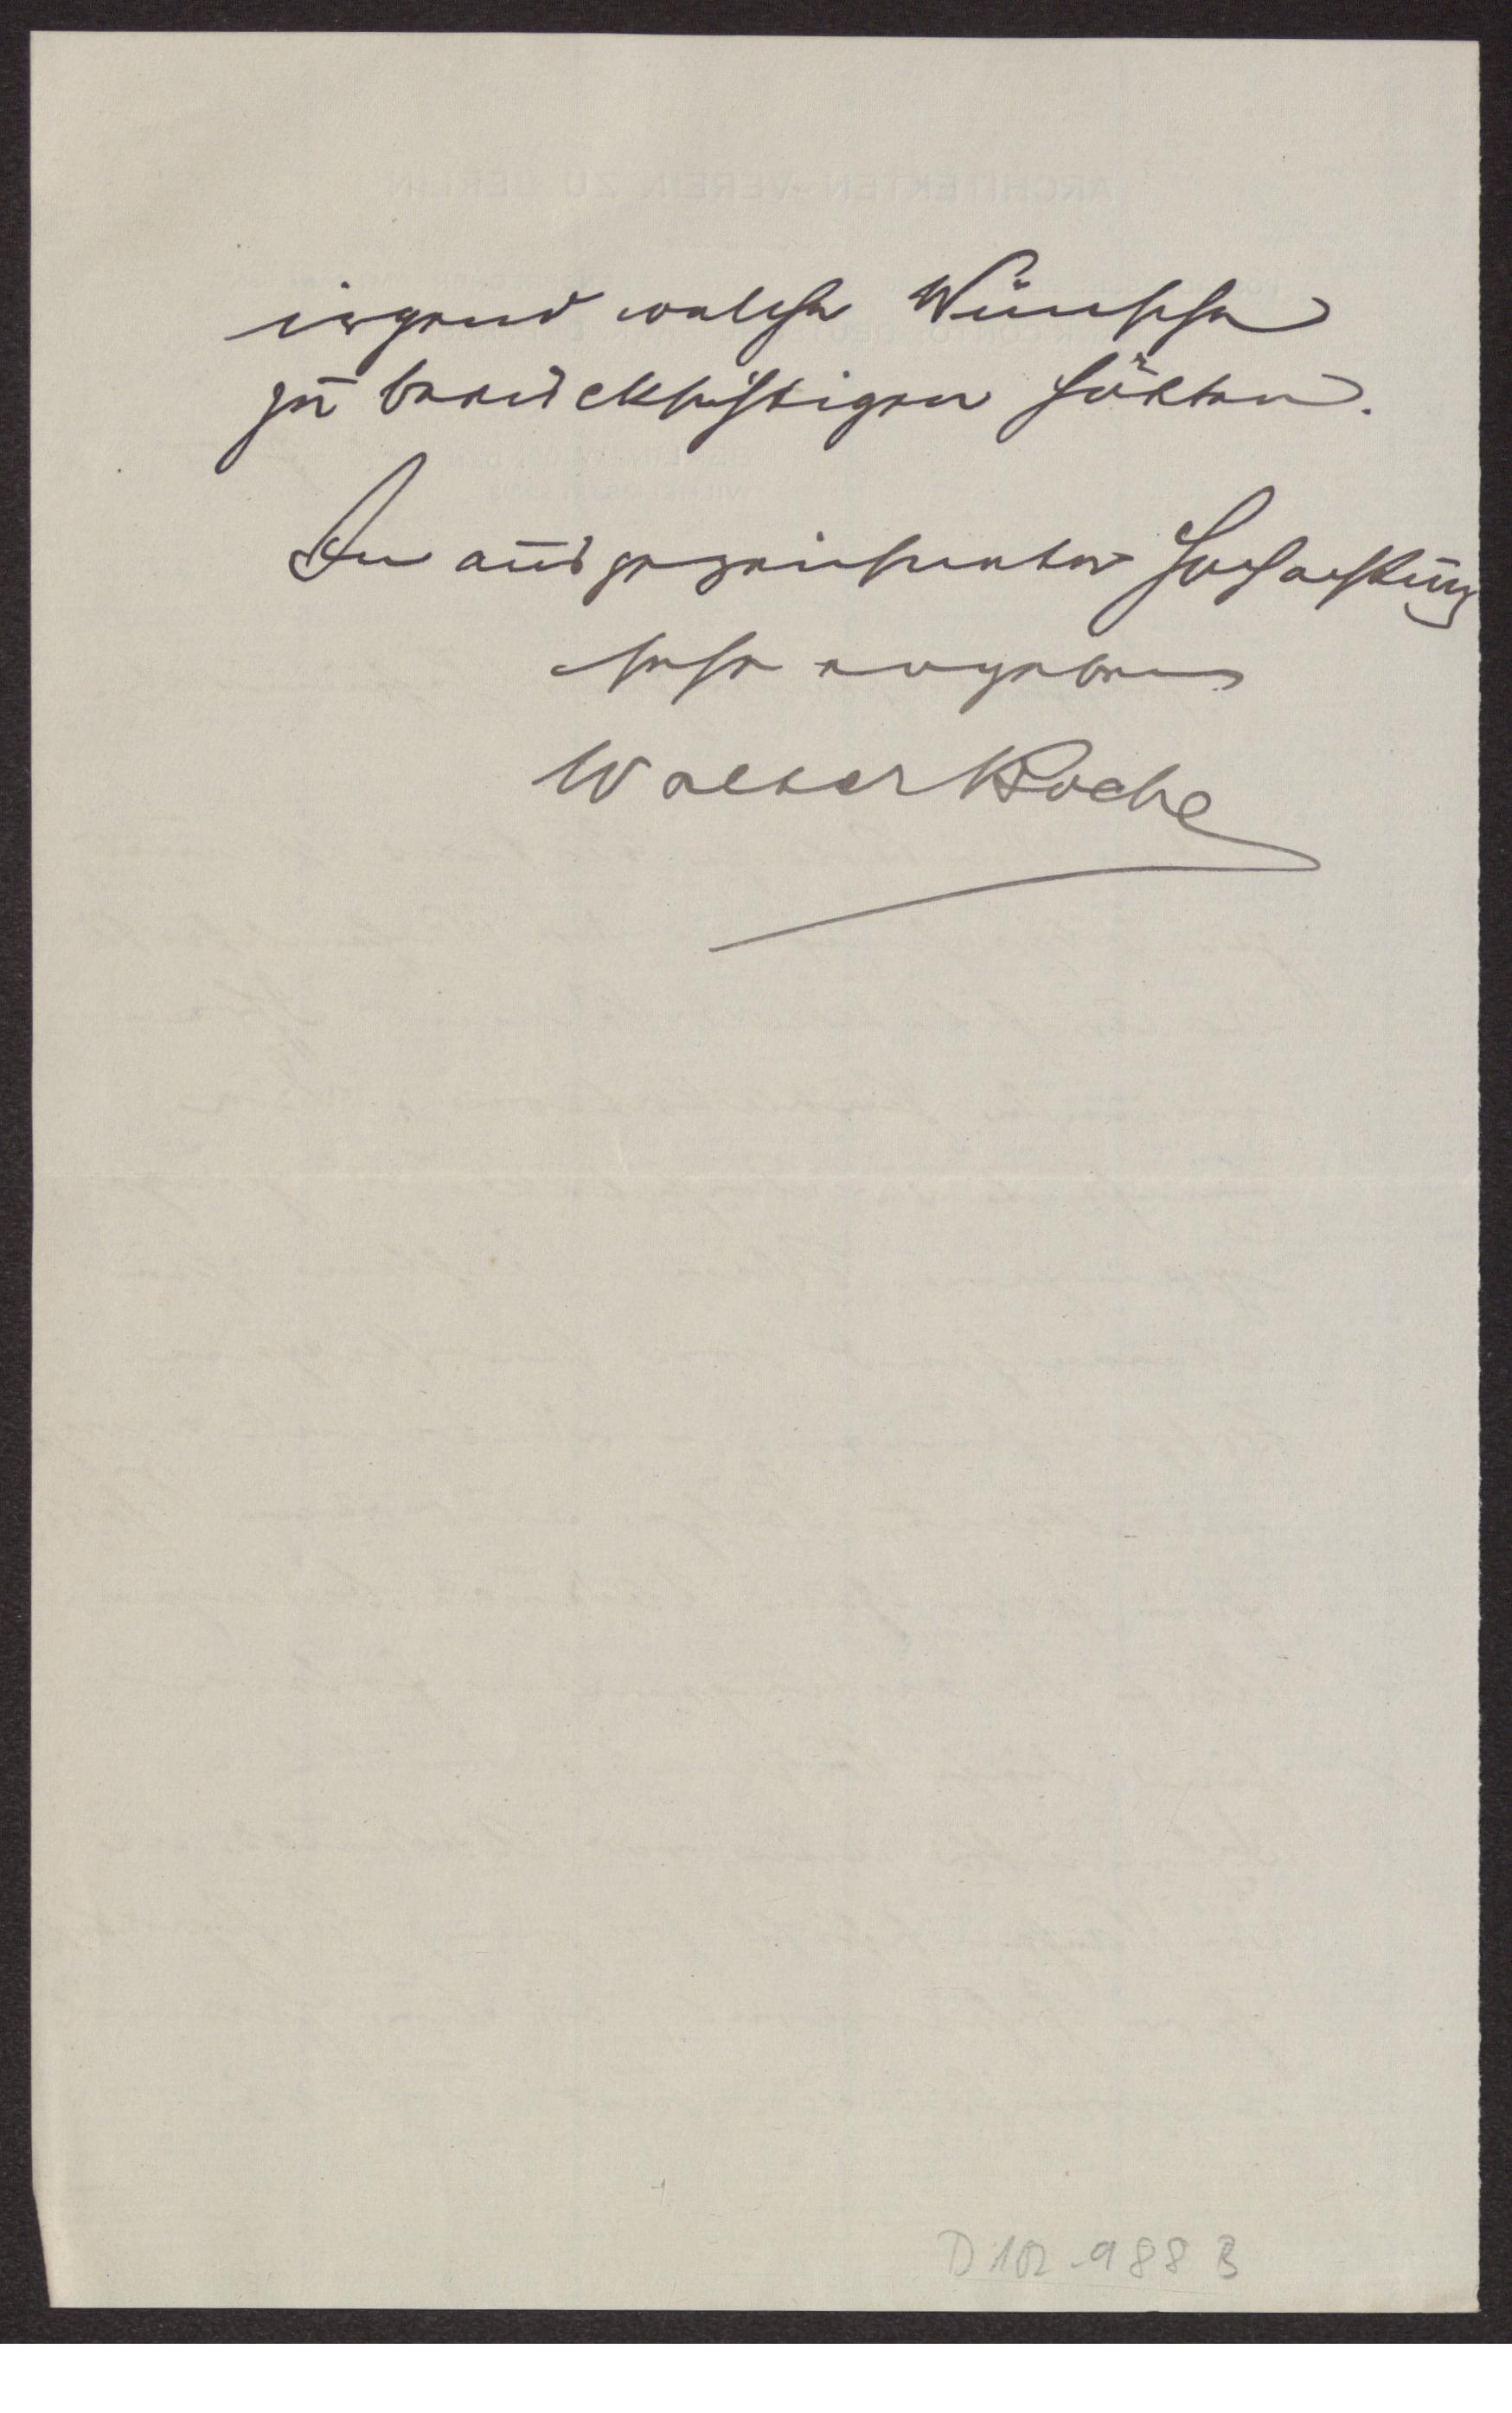 irgend welche Wünsche
zu berücksichtigen hätten.
In ausgezeichneter Hochachtung
sehr ergebener
Walter Koche
D 102.988 B